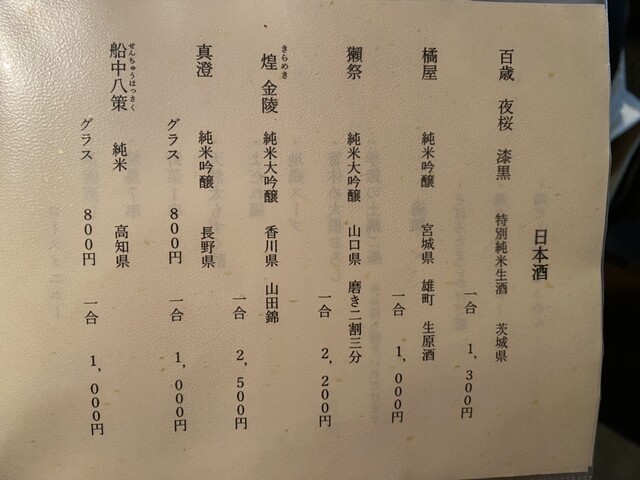 日本酒
百歳 夜桜 漆黒 特別純米生酒 茨城県
一合 1,300円
橘屋 純米吟醸 宮城県 雄町 生原酒
一合 1,000円
獺祭 純米大吟醸 山口県 磨き二割三分
一合 2,200円
煌 金陵 純米大吟醸 香川県 山田錦
きらめき
一合 2,500円
真澄 純米吟醸 長野県
グラス 800円 一合 1,000円
船中八策 純米 高知県
せんちゅうはっさく
グラス 800円 一合 1,000円